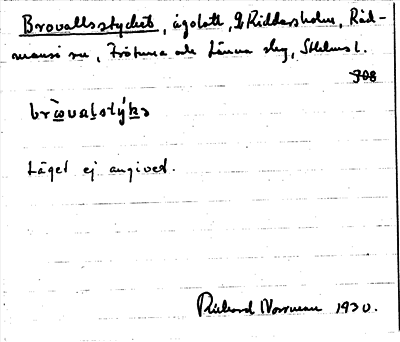 Brovallsstycket, ägolott, G Riddersholm, Råd-
mansö sn, Frötuna och Länna skg, Sthlms l.
708
brωvalstyks
Läget ej angivet.
Rickard Norrman 1930.